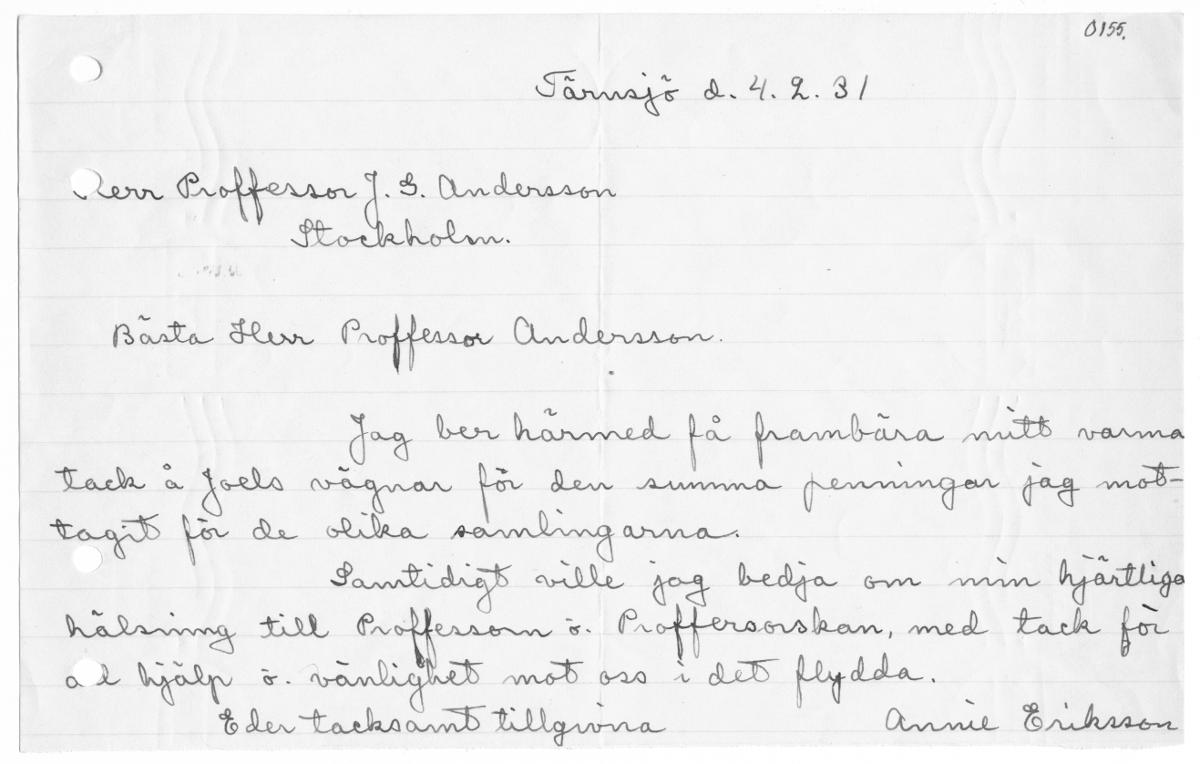 0155.
Tärnsjö d. 4. 2. 31
Herr Proffessor J. G. Andersson
Stockholm.
Bästa Herr Proffessor Andersson.
Jag ber härmed få frambära mitt varma
tack å Joels vägnar för den summa penningar jag mot-
tagit för de olika samlingarna.
Samtidigt ville jag bedja om min hjärtliga
hälsning till Proffessorn o. Proffersorskan, med tack för
all hjälp o. vänlighet mot oss i det flydda.
Eder tacksamt tillgivna Annie Eriksson